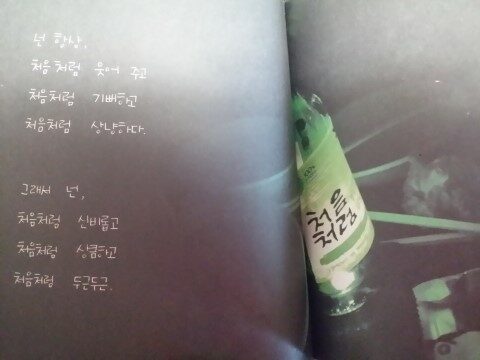 넌 항상,
처음처럼 웃어 주고
처음처럼 기뻐하고
처음처럼 상냥하다.
그래서 넌,
처음처럼 신비롭고
처음처럼 상큼하고
처음처럼 두근두근.
처음
처럼